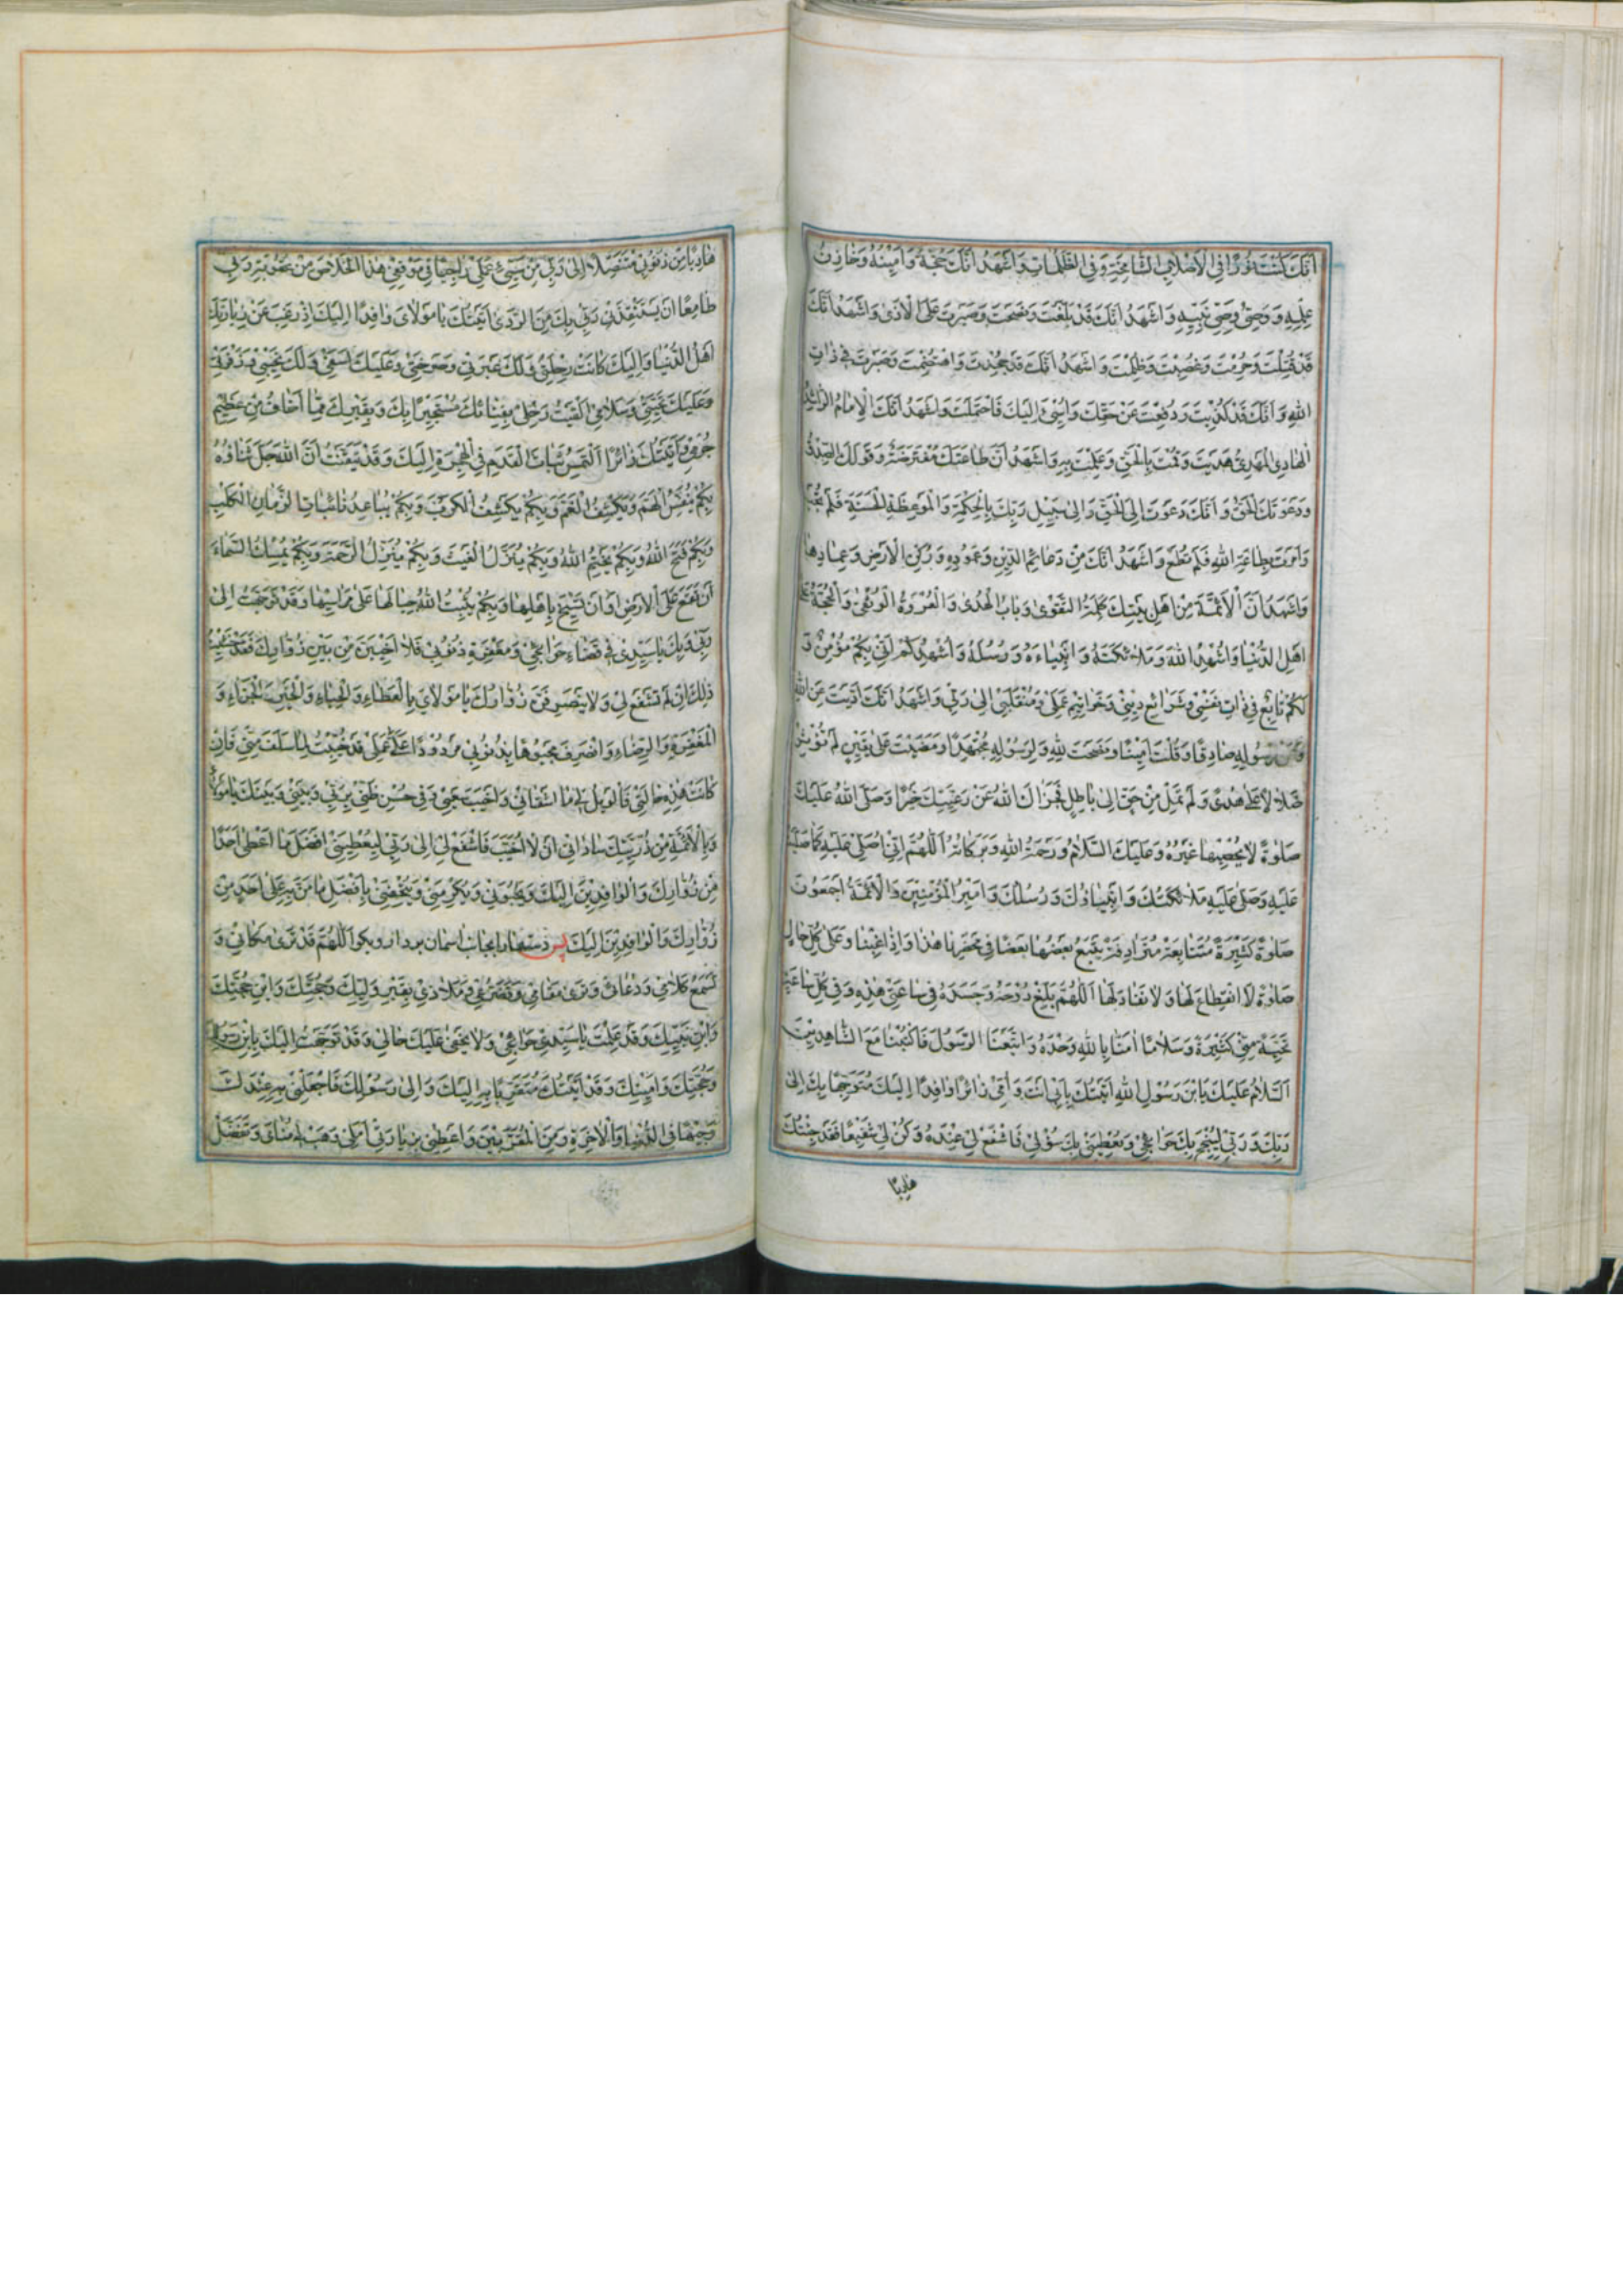 اَنَّكَ كُنْتَ نُورًا فِي الْأَصْلَابِ الشَّامِخَةِ وَفِي الظُّلُمَاتِ وَاَشْهَدُ اَنَّكَ حُجَّةُ وَاَمِينُهُ وَخَازِنُ
عِلْمِهِ وَوَصِيُّ وَصِيِّ نَبِيِّهِ وَاَشْهَدُ اَنَّكَ قَدْ بَلَّغْتَ وَنَصَحْتَ وَصَبَرْتَ عَلَى الْاَذٰى وَاَشْهَدُ اَنَّكَ
قَدْ قُتِلْتَ وَحُرِمْتَ وَغُصِبْتَ وَظُلِمْتَ وَاَشْهَدُ اَنَّكَ قَدْ جُحِدْتَ وَاهْتُضِمْتَ وَصَبَرْتَ فِي ذَاتِ
اللهِ وَاَنَّكَ قَدْ كُذِّبْتَ وَدُفِعْتَ عَنْ حَقِّكَ وَاُسِيْءَ اِلَيْكَ فَاحْتَمَلْتَ وَاَشْهَدُ اَنَّكَ الْاِمَامُ الرَّاشِدُ
الْهَادِي الْمَهْدِيُّ هَدَيْتَ وَقُمْتَ بِالْحَقِّ وَعَمِلْتَ بِهِ وَاَشْهَدُ اَنَّ طَاعَتَكَ مُفْتَرَضَةٌ وَقَوْلَكَ الصِّدْقُ
وَدَعْوَتَكَ الْحَقُّ وَاَنَّكَ دَعَوْتَ اِلَى الْحَقِّ وَاِلٰى سَبِيْلِ رَبِّكَ بِالْحِكْمَةِ وَالْمَوْعِظَةِ الْحَسَنَةِ فَلَمْ تُجَبْ
وَاَمَرْتَ بِطَاعَةِ اللهِ فَلَمْ تُطَعْ وَاَشْهَدُ اَنَّكَ مِنْ دَعَائِمِ الدِّيْنِ وَعَمُودِهِ وَرُكْنِ الْاَرْضِ وَعِمَادِهَا
وَاَشْهَدُ اَنَّ الْاَئِمَّةَ مِنْ اَهْلِ بَيْتِكَ كَلِمَةُ التَّقْوٰى وَبَابُ الْهُدٰى وَالْعُرْوَةُ الْوُثْقٰى وَالْحُجَّةُ عَلٰى
اَهْلِ الدُّنْيَا وَاُشْهِدُ اللهَ وَمَلَائِكَتَهُ وَاَنْبِيَاءَهُ وَرُسُلَهُ وَاُشْهِدُكُمْ اَنِّي بِكُمْ مُؤْمِنٌ وَ
لَكُمْ تَابِعٌ فِي ذَاتِ نَفْسِي وَشَرَائِعِ دِيْنِي وَخَوَاتِيْمِ عَمَلِي وَمُنْقَلَبِي اِلٰى رَبِّي وَاَشْهَدُ اَنَّكَ اَدَّيْتَ عَنِ اللهِ
وَعَنْ رَسُولِهِ صَادِقًا وَقُلْتَ اَمِيْنًا وَنَصَحْتَ لِلّٰهِ وَلِرَسُولِهِ مُجْتَهِدًا وَمَضَيْتَ عَلٰى يَقِيْنٍ لَمْ تُؤْثِرْ
ضَلَالًا عَلٰى هُدًى وَلَمْ تَمِلْ مِنْ حَقٍّ اِلٰى بَاطِلٍ فَجَزَاكَ اللهُ عَنْ رَعِيَّتِكَ خَيْرًا وَصَلَّى اللهُ عَلَيْكَ
صَلٰوةً لَا يُحْصِيْهَا غَيْرُهُ وَعَلَيْكَ السَّلَامُ وَرَحْمَةُ اللهِ وَبَرَكَاتُهُ اَللّٰهُمَّ اِنِّي اُصَلِّي عَلَيْهِ كَمَا صَلَّيْتَ
عَلَيْهِ وَصَلّٰى عَلَيْهِ مَلَائِكَتُكَ وَاَنْبِيَاؤُكَ وَرُسُلُكَ وَاَمِيْرُ الْمُؤْمِنِيْنَ وَالْاَئِمَّةُ اَجْمَعُوْنَ
صَلٰوةً كَثِيْرَةً مُتَتَابِعَةً مُتَرَادِفَةً يَتْبَعُ بَعْضُهَا بَعْضًا فِي مَحْضَرِنَا هٰذَا وَاِذَا غِبْنَا وَعَلٰى كُلِّ حَالٍ
صَلٰوةً لَا انْقِطَاعَ لَهَا وَلَا نَفَادَ لَهَا اَللّٰهُمَّ بَلِّغْ رُوْحَهُ وَجَسَدَهُ فِي سَاعَتِي هٰذِهِ وَفِي كُلِّ سَاعَةٍ
تَحِيَّةً مِنِّي كَثِيْرَةً وَسَلَامًا اٰمَنَّا بِاللهِ وَحْدَهُ وَاتَّبَعْنَا الرَّسُوْلَ فَاكْتُبْنَا مَعَ الشَّاهِدِيْنَ
اَلسَّلَامُ عَلَيْكَ يَا ابْنَ رَسُوْلِ اللهِ اَتَيْتُكَ بِاَبِي اَنْتَ وَاُمِّي زَائِرًا وَافِدًا اِلَيْكَ مُتَوَجِّهًا بِكَ اِلٰى
رَبِّكَ وَرَبِّي لِيُنْجِحَ بِكَ حَوَائِجِي وَيُعْطِيَنِي بِكَ سُؤْلِي فَاشْفَعْ لِي عِنْدَهُ وَكُنْ لِي شَفِيْعًا فَقَدْ جِئْتُكَ
هَارِبًا
هَارِبًا مِنْ ذُنُوْبِي مُتَنَصِّلًا اِلٰى رَبِّي مِنْ سَيِّئِ عَمَلِي رَاجِيًا فِي مَوْقِفِي هٰذَا الْخَلَاصَ مِنْ عُقُوْبَةِ رَبِّي
طَامِعًا اَنْ يَسْتَنْقِذَنِي رَبِّي بِكَ مِنَ الرَّدٰى اَتَيْتُكَ يَا مَوْلَايَ وَافِدًا اِلَيْكَ اِذْ رَغِبَ عَنْ زِيَارَتِكَ
اَهْلُ الدُّنْيَا وَاِلَيْكَ كَانَتْ رِحْلَتِي وَلَكَ عَبْرَتِي وَصَرْخَتِي وَعَلَيْكَ اَسَفِي وَلَكَ نَحِيْبِي وَزَفْرَتِي
وَعَلَيْكَ تَحِيَّتِي وَسَلَامِي اَلْقَيْتُ رَحْلِي بِفِنَائِكَ مُسْتَجِيْرًا بِكَ وَبِقَبْرِكَ مِمَّا اَخَافُ مِنْ عَظِيْمِ
جُرْمِي وَاَتَيْتُكَ زَائِرًا اَلْتَمِسُ ثَبَاتَ الْقَدَمِ فِي الْهِجْرَةِ اِلَيْكَ وَقَدْ تَيَقَّنْتُ اَنَّ اللهَ جَلَّ ثَنَاؤُهُ
بِكُمْ يُنَفِّسُ الْهَمَّ وَيَكْشِفُ الْغَمَّ وَبِكُمْ يَكْشِفُ الْكَرْبَ وَبِكُمْ يُبَاعِدُ نَائِبَاتِ الزَّمَانِ الْكَلِبِ
وَبِكُمْ فَتَحَ اللهُ وَبِكُمْ يَخْتِمُ اللهُ وَبِكُمْ يُنَزِّلُ الْغَيْثَ وَبِكُمْ يُنَزِّلُ الرَّحْمَةَ وَبِكُمْ يُمْسِكُ السَّمَاءَ
اَنْ تَقَعَ عَلَى الْاَرْضِ اَوْ اَنْ تَسِيْخَ بِاَهْلِهَا وَبِكُمْ يُثَبِّتُ اللهُ جِبَالَهَا عَلٰى مَرَاسِيْهَا وَقَدْ تَوَجَّهْتُ اِلٰى
رَبِّي بِكَ يَا سَيِّدِي فِي قَضَاءِ حَوَائِجِي وَمَغْفِرَةِ ذُنُوْبِي فَلَا اَخِيْبَنَّ مِنْ بَيْنِ زُوَّارِكَ فَقَدْ خَشِيْتُ
ذٰلِكَ اِنْ لَمْ تَشْفَعْ لِي وَلَا يَنْصَرِفَنَّ زُوَّارُكَ يَا مَوْلَايَ بِالْعَطَاءِ وَالْحِبَاءِ وَالْخَيْرِ وَالْجَزَاءِ وَ
الْمَغْفِرَةِ وَالرِّضَاءِ وَاَنْصَرِفَ مَجْبُوْهًا بِذُنُوْبِي مَرْدُوْدًا عَلَيَّ عَمَلِي قَدْ خُيِّبْتُ لِمَا سَلَفَ مِنِّي فَاِنْ
كَانَتْ هٰذِهِ حَالَتِي فَالْوَيْلُ لِي مَا اَشْقَانِي وَاَخْيَبَ سَعْيِي وَفِي حُسْنِ ظَنِّي بِرَبِّي وَبِنَبِيِّي وَبِكَ يَا مَوْلَايَ
وَبِالْاَئِمَّةِ مِنْ ذُرِّيَّتِكَ سَادَاتِي اَنْ لَا اَخِيْبَ فَاشْفَعْ لِي اِلٰى رَبِّي لِيُعْطِيَنِي اَفْضَلَ مَا اَعْطٰى اَحَدًا
مِنْ زُوَّارِكَ وَالْوَافِدِيْنَ اِلَيْكَ وَيَحْبُوَنِي وَيُكْرِمَنِي وَيُتْحِفَنِي بِاَفْضَلِ مَا مَنَّ بِهِ عَلٰى اَحَدٍ مِنْ
زُوَّارِكَ وَالْوَافِدِيْنَ اِلَيْكَ پس دستها را بجانب اسمان بردار و بكو اَللّٰهُمَّ قَدْ تَرٰى مَكَانِي وَ
تَسْمَعُ كَلَامِي وَدُعَائِي وَتَرٰى مَقَامِي وَتَضَرُّعِي وَمَلَاذِي بِقَبْرِ وَلِيِّكَ وَحُجَّتِكَ وَابْنِ حُجَّتِكَ
وَابْنِ نَبِيِّكَ وَقَدْ عَلِمْتَ يَا سَيِّدِي حَوَائِجِي وَلَا يَخْفٰى عَلَيْكَ حَالِي وَقَدْ تَوَجَّهْتُ اِلَيْكَ بِابْنِ رَسُوْلِكَ
وَحُجَّتِكَ وَاَمِيْنِكَ وَقَدْ اَتَيْتُكَ مُتَقَرِّبًا بِهِ اِلَيْكَ وَاِلٰى رَسُوْلِكَ فَاجْعَلْنِي بِهِ عِنْدَكَ
وَجِيْهًا فِي الدُّنْيَا وَالْاٰخِرَةِ وَمِنَ الْمُقَرَّبِيْنَ وَاَعْطِنِي بِزِيَارَتِي اَمَلِي وَهَبْ لِي مُنَايَ وَتَفَضَّلْ